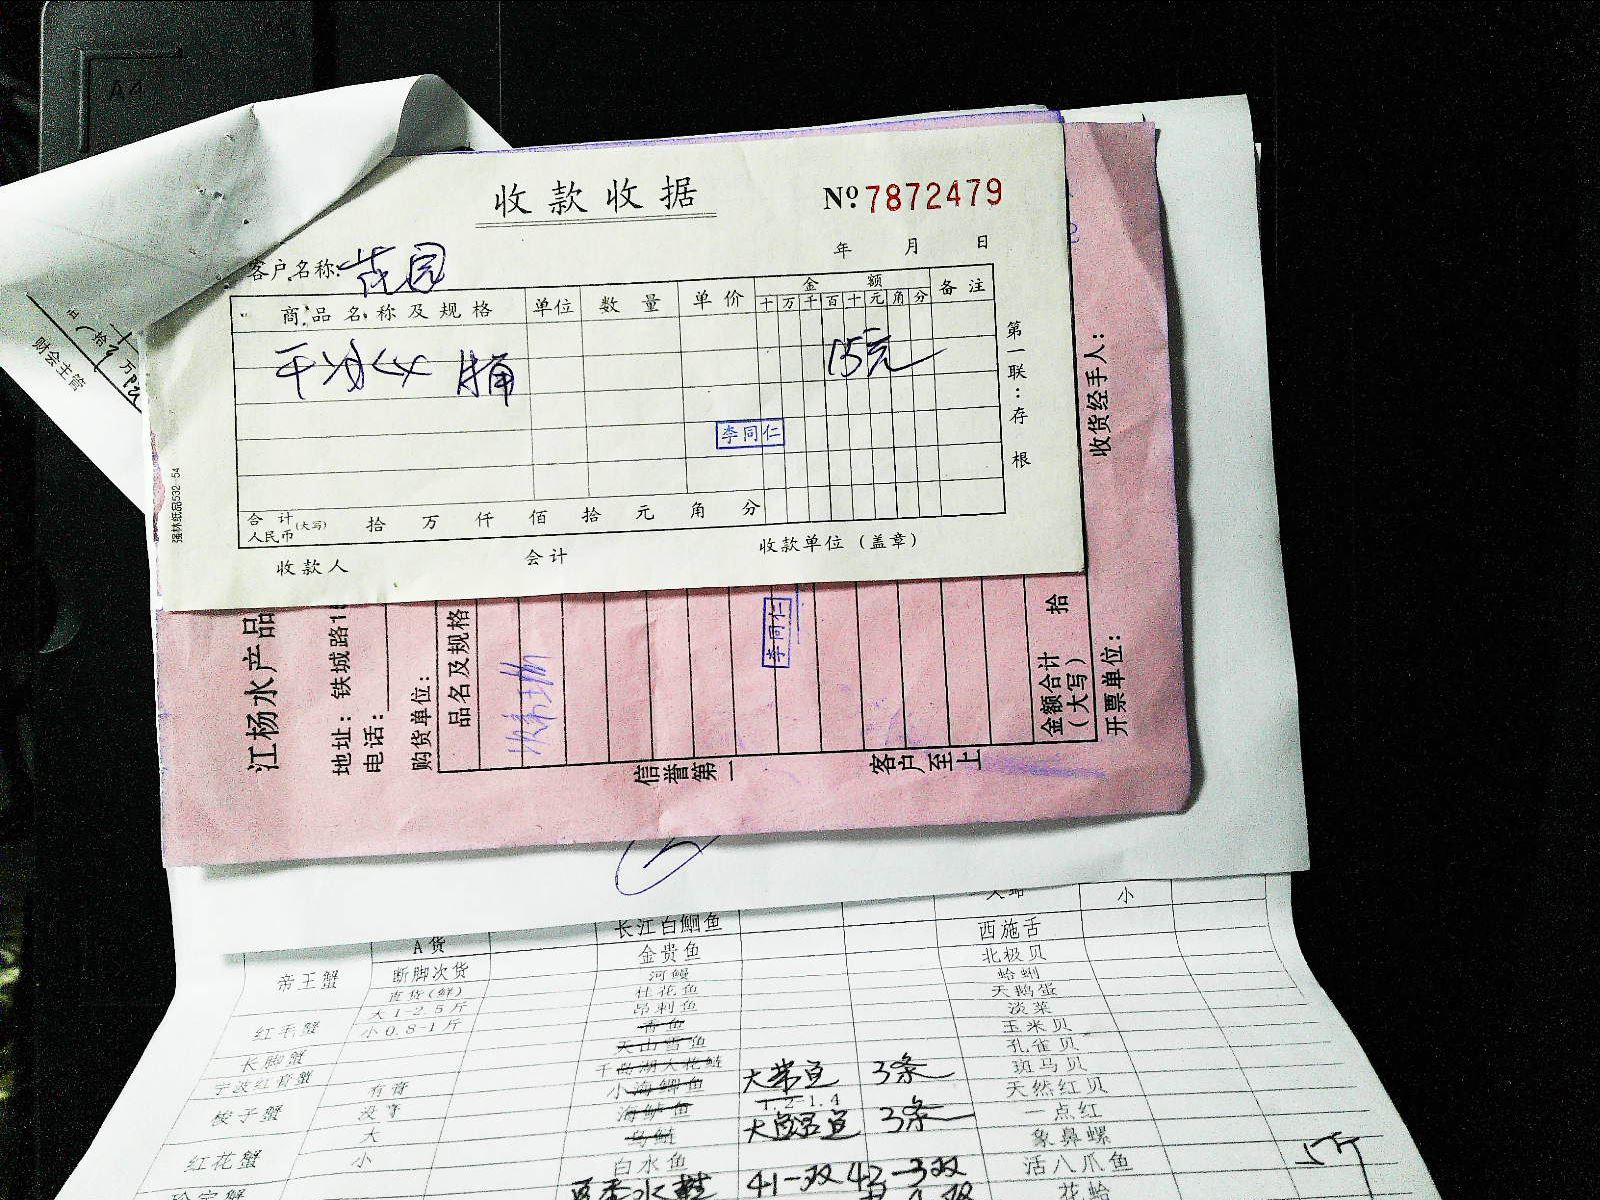 A4
收款收据
№7872479
年 月 日
客户名称: 花园
商品名称及规格 单位 数量 单价 金额 备注
十 万 千 百 十 元 角 分
15元
李同仁
合计 人民币 (大写) 拾 万 仟 佰 拾 元 角 分
收款人 会计 收款单位(盖章)
第一联:存根
强林纸品532-54
财会主管
拾 万
收货经手人:
江杨水产品
地址: 铁城路1
电话:
购货单位:
品名及规格
李同仁
信誉第一 客户至上
金额合计(大写) 拾
开票单位:
小
A货 长江白鮰鱼 西施舌
帝王蟹 断脚次货 金贵鱼 北极贝
直货(鲜) 河鳗 蛤蜊
红毛蟹 大1-2.5斤 桂花鱼 天鹅蛋
小0.8-1斤 昂刺鱼 淡菜
长脚蟹 青鱼 玉米贝
宁波红膏蟹 天山雪鱼 孔雀贝
有膏 千岛湖大花鲢 斑马贝
梭子蟹 没膏 小海鲫鱼 大带鱼 3条 天然红贝
大 海鲈鱼 1.2-1.4 一点红
红花蟹 小 乌鲢 3条 象鼻螺
白水鱼 活八爪鱼 5斤
水鞋 41一双 42-3双 花蛤